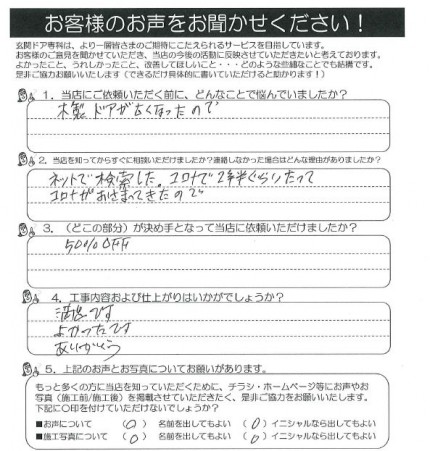 お客様のお声をお聞かせください！
玄関ドア専科は、より一層皆さまのご期待にこたえられるサービスを目指しています。
お客様のご意見を聞かせていただき、当店の今後の活動に反映させていただきたいと考えております。
よかったこと、うれしかったこと、改善してほしいこと・・・どのような些細なことでも結構です。
是非ご協力お願いいたします（できるだけ具体的に書いていただけると助かります！）
1．当店にご依頼いただく前に、どんなことで悩んでいましたか？
木製ドアが古くなったので
2．当店を知ってからすぐに相談いただけましたか？連絡しなかった場合はどんな理由がありましたか？
ネットで検索した。コロナで2年半ぐらいたって
コロナがおさまってきたので
3．（どこの部分）が決め手となって当店に依頼いただけましたか？
50%OFF
4．工事内容および仕上がりはいかがでしょうか？
満足です
よかったです
ありがとう
5．上記のお声とお写真についてお願いがあります。
もっと多くの方に当店を知っていただくために、チラシ・ホームページ等にお声やお
写真（施工前/施工後）を掲載させていただきたく、是非ご協力をお願いいたします。
下記に〇印を付けていただけないでしょうか？
■お声について （〇） 名前を出してもよい （〇） イニシャルなら出してもよい
■施工写真について （〇） 名前を出してもよい （〇） イニシャルなら出してもよい